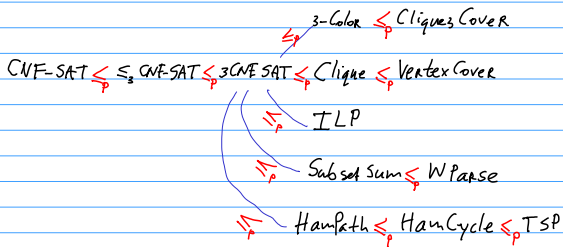 ≤p 3-Color ≤p Clique3Cover
CNF-SAT ≤p ≤3 CNF-SAT ≤p 3CNF SAT ≤p Clique ≤p VertexCover
≤p ILP
≤p Subset Sum ≤p W Parse
≤p HamPath ≤p HamCycle ≤p TSP